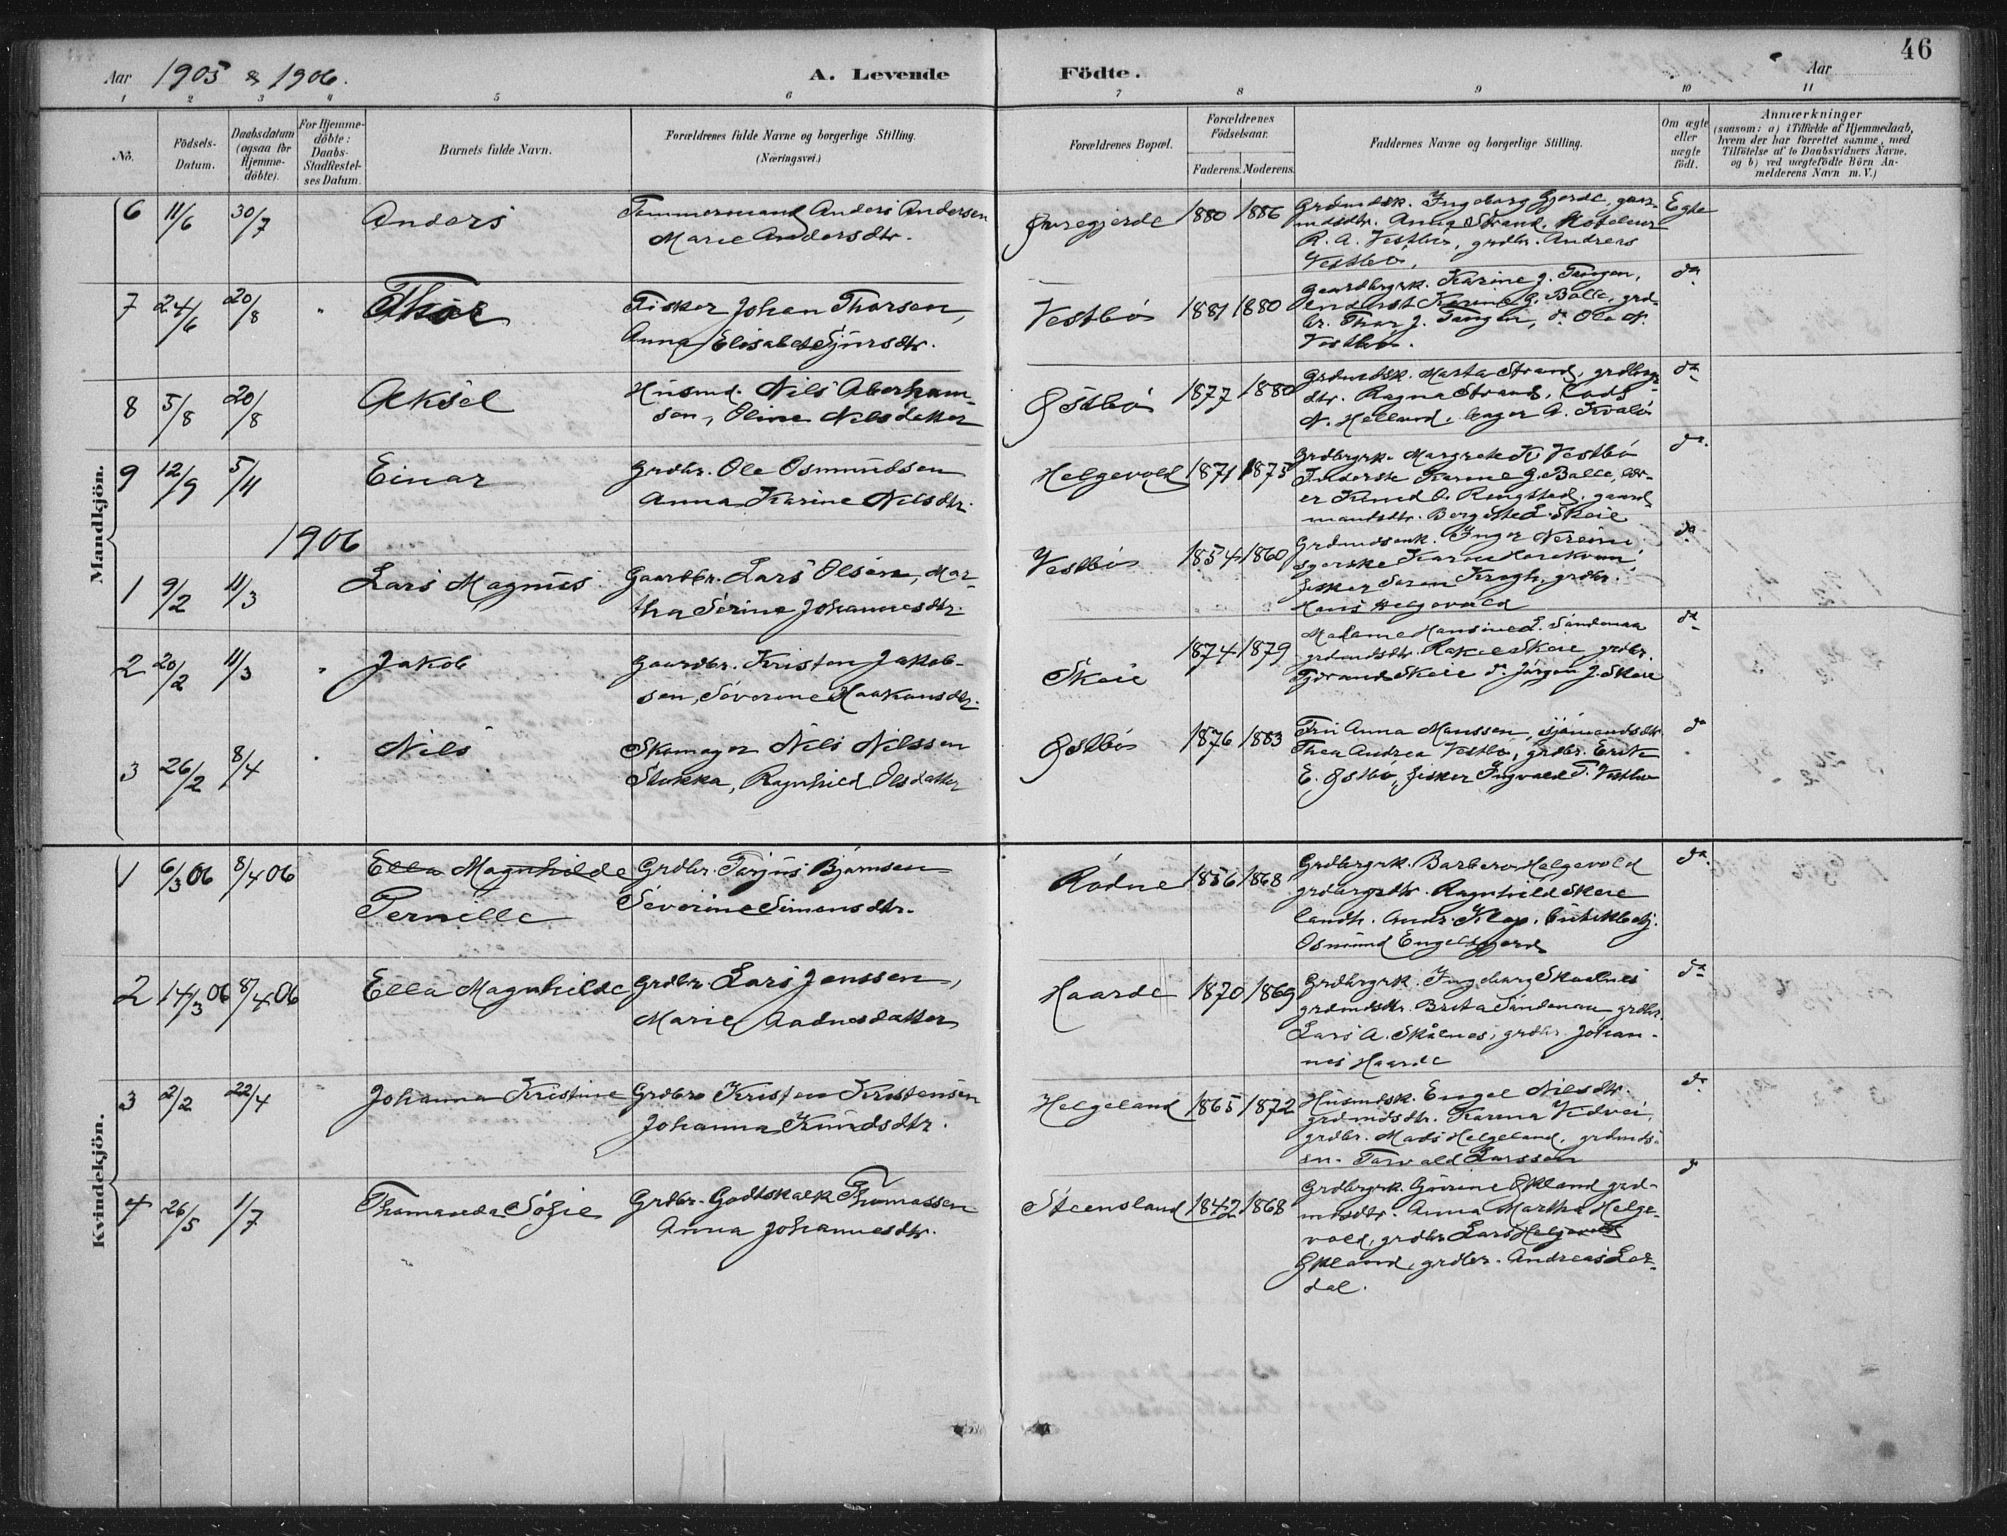 46
Aar 1905 & 1906.
A. Levende Födte.
Aar
1 2 3 4 5 6 7 8 9 10 11
No.
Födsels-Datum.
Daabsdatum (ogsaa for Hjemme-döbte).
For Hjemme-döbte: Daabs-Stadfæstel-ses Datum.
Barnets fulde Navn.
Forældrenes fulde Navne og borgerlige Stilling. (Næringsvei.)
Forældrenes Bopæl.
Forældrenes Födselsaar.
Faderens. Moderens.
Faddernes Navne og borgerlige Stilling.
Om ægte eller uægte födt.
Anmærkninger
(saasom: a) i Tilfælde af Hjemmedaab, hvem der har forrettet samme, med Tilföielse af to Daabsvidners Navne, og b) ved uægtefödte Börn Anmelderens Navn m. V.)
Mandkjön.
6 11/6 30/7 Anders
Tømmermand Anders Andersen
Marie Andersdtr.
Øvregjerde 1880 1886
Grdmdsk. Ingeborg Gjerde, gaar-
mdsdtr. Anna Strand,
R. A. Vestbø, grdbr. Andreas
Vestbø,
Egte
7 24/6 20/8 " Thor
Fisker Johan Thorsen,
Anna Elisabet Sjursdtr.
Vestbø 1881 1880
Gaardbrgrk. Karine J. Tangen,
inderst Karine G. Balle, grd-
br. Thor J. Tangen, do. Ole N.
Vestbø.
do
8 5/8 20/8 Aksel
Husmd. Nils Aberham-
sen, Oline Nilsdatter
Østbø 1877 1880
Grdmdsk. Marta Strand, grdbrgr-
dtr. Ragna Strand, Lods
N. Helland, bager A. Kvalø
do
9 12/9 5/11 Einar
Grdbr. Ole Osmundsen
Anna Karine Nilsdtr.
Helgevold 1871 1875
Grdbrgrk. Margrete K. Vestbø
Inderste Karine G. Balle, lær-
er Knud O. Ringstad, gaard-
mandsdtr. Borgitte L. Skeie
do.
1906
1 9/2 11/3 Lars Magnus
Gaardbr. Lars Olsen, Mar-
tha Serine Johannesdtr.
Vestbø 1854 1860
Grdmdsenk. Inger Nereim
fisker Søren Krogh, grdbr.
Hans Helgevold
do
2 20/2 11/3 " Jakob
Gaardbr. Kristen Jakob-
sen, Severine Haakonsdtr.
Skeie 1874 1879
Madame Hansine L. Sandenaa
grdmdsdtr. Rakel Skeie, grdbr.
Tjerand Skeie do. Jørgen J. Skeie
do
3 26/2 8/4 " Nils
Skomager Nils Nilssen
Stokka, Ragnhild Olsdatter
Østbø 1876 1883
Fru Anna Monssen, sjømandsdtr.
Thea Andrea Vestbø, grdbr. Erik
E. Østbø, fisker Ingvald T. Vestbø
do
Kvindekjön.
1 6/3 06 8/4 06 Ella Magnhilde
Pernille
Grdbr. Torjus Bjørnsen
Severine Simonsdtr.
Rødne 1856 1868
Grdbrgrk. Barbero Helgevold
grdbrgrdtr. Ragnhild Skeie
landh. Andr. Klep,
Osmund Engelsgjerd
do.
2 14/3 06 8/4 06 Ella Magnhilde
Grdbr. Lars Jenssen,
Marie Aadnesdatter
Haarde 1870 1869
Grdbrgrk. Ingeborg Skaalnes
grdmdsdtr. Brita Sandenaa, grdbr.
Lars A. Skålnes, grdbr. Johan-
nes Haarde
do
3 2/2 22/4 Johanna Kristine
Grdbr. Kristen Kristensen
Johanna Knudsdtr.
Helgeland 1865 1872
Husmdsk. Engel Nilsdtr.
grdmdsdtr. Karina Vedvei,
grdbr. Mads Helgeland, grdmds-
sn. Torvald Larssen
do
4 26/5 1/7 Thomanda Sofie
Grdbr. Godtskalk Thomassen
Anna Johannesdtr.
Steensland 1842 1868
Grdbrgrk. Gurine Økland grd-
mdsdtr. Anna Martha Helge-
vold, grdbr. Lars Helgevold
Økland, grdbr. Andreas Lær-
dal.
do